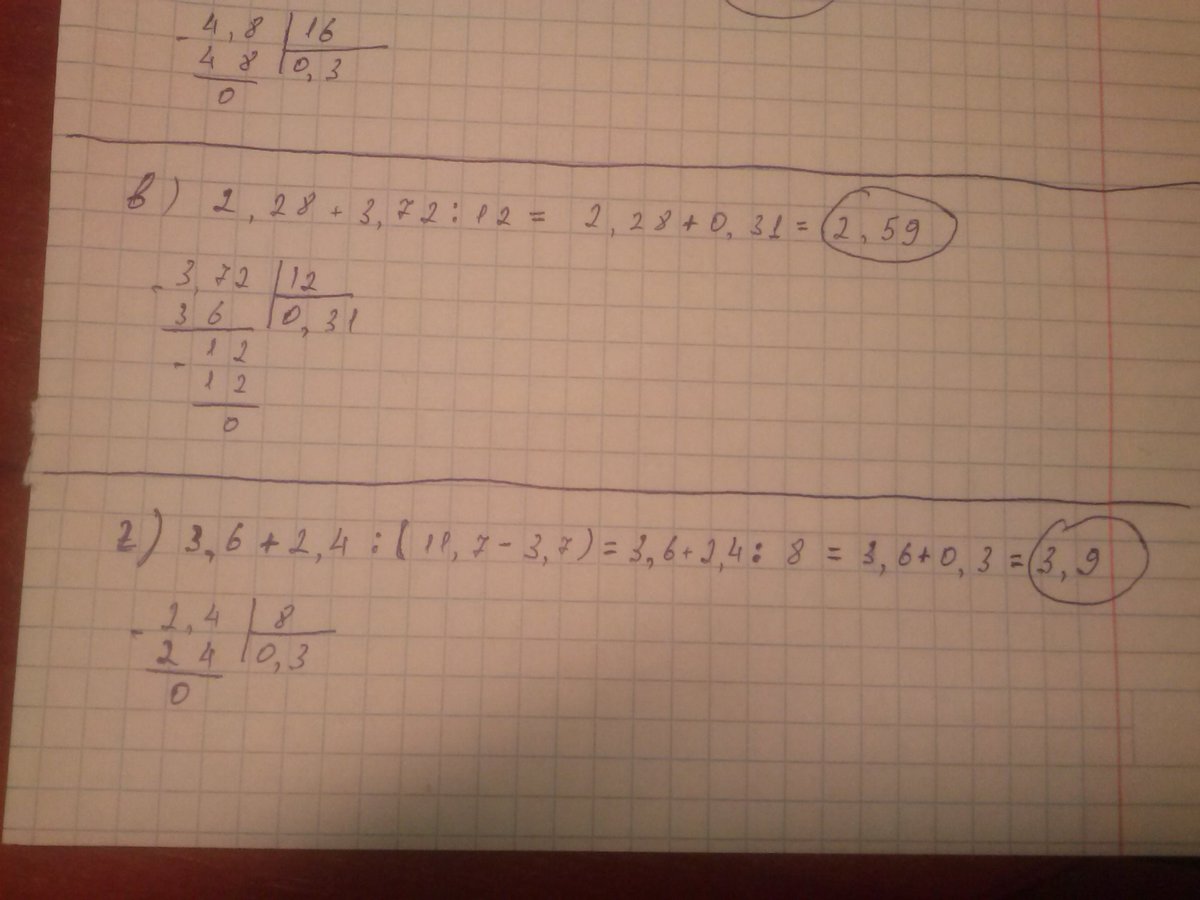 - 4,8 | 16
4 8 | 0,3
0
в) 2,28 + 3,72 : 12 = 2,28 + 0,31 = 2,59
- 3,72 | 12
3 6 | 0,31
- 1 2
1 2
0
г) 3,6 + 2,4 : (11,7 - 3,7) = 3,6 + 2,4 : 8 = 3,6 + 0,3 = 3,9
- 2,4 | 8
2 4 | 0,3
0